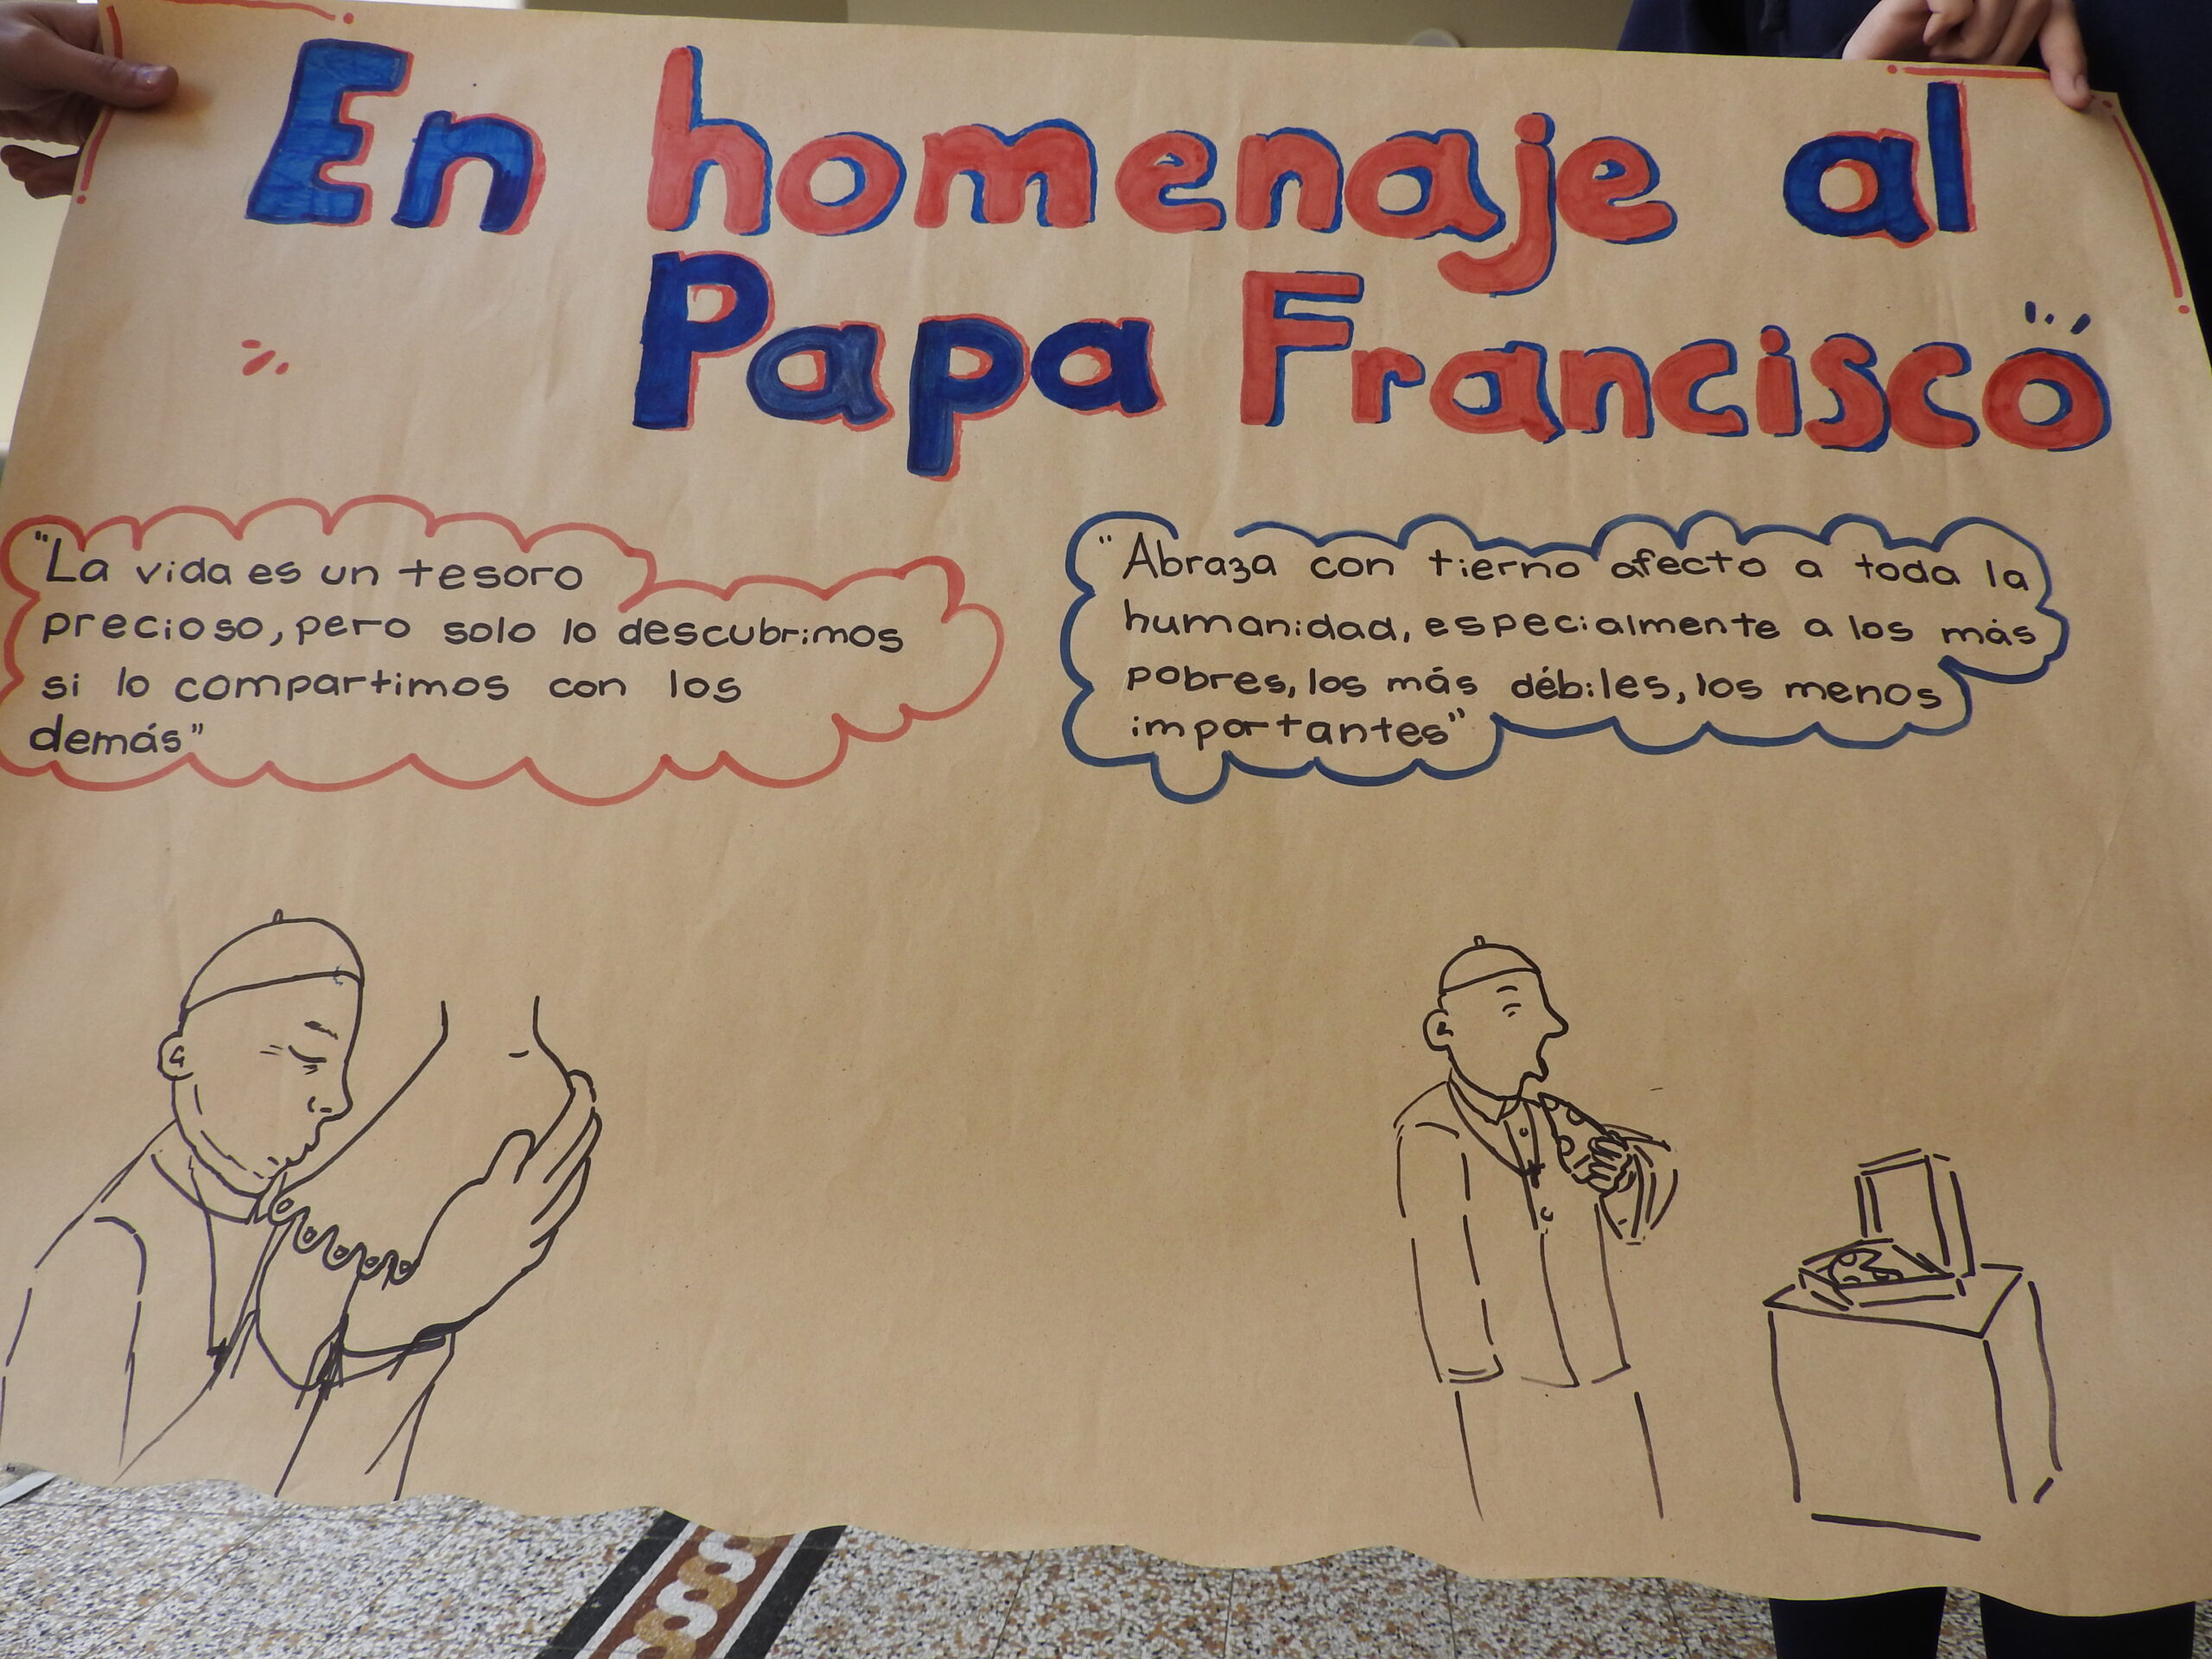 En homenaje al
Papa Francisco
"La vida es un tesoro
precioso, pero solo lo descubrimos
si lo compartimos con los
demás"
"Abraza con tierno afecto a toda la
humanidad, especialmente a los más
pobres, los más débiles, los menos
importantes"